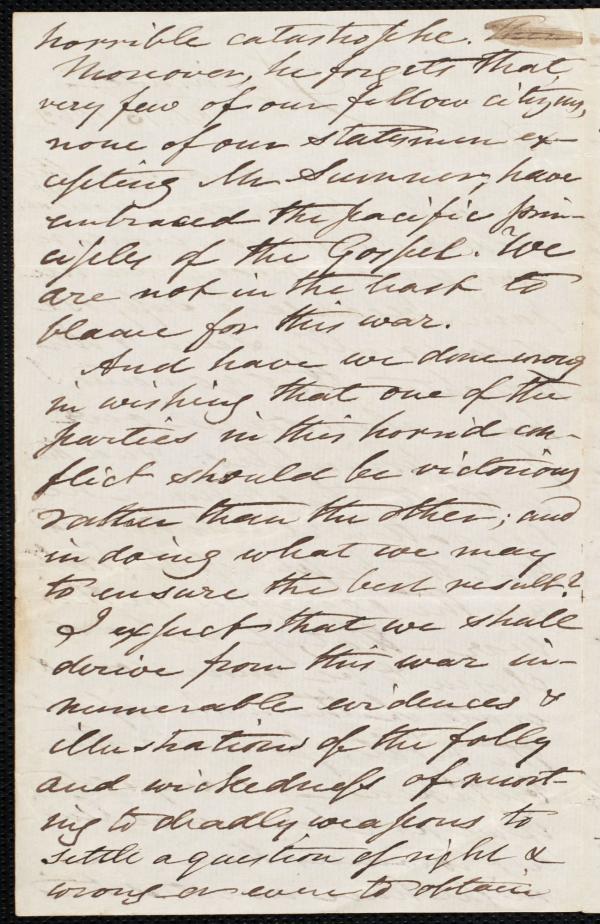 horrible catastrophe.
Moreover, he forgets that
very few of our fellow citizens,
none of our statesmen ex-
cepting Mr Sumner, have
embraced the pacific prin-
ciples of the Gospel. We
are not in the least to
blame for this war.
And have we done wrong
in wishing that one of the
parties in this horrid con-
flict should be victorious
rather than the other; and
in doing what we may
to ensure the best result?
I expect that we shall
derive from this war in-
numerable evidences &
illustrations of the folly
and wickedness of resort-
ing to deadly weapons to
settle a question of right &
wrong or even to obtain